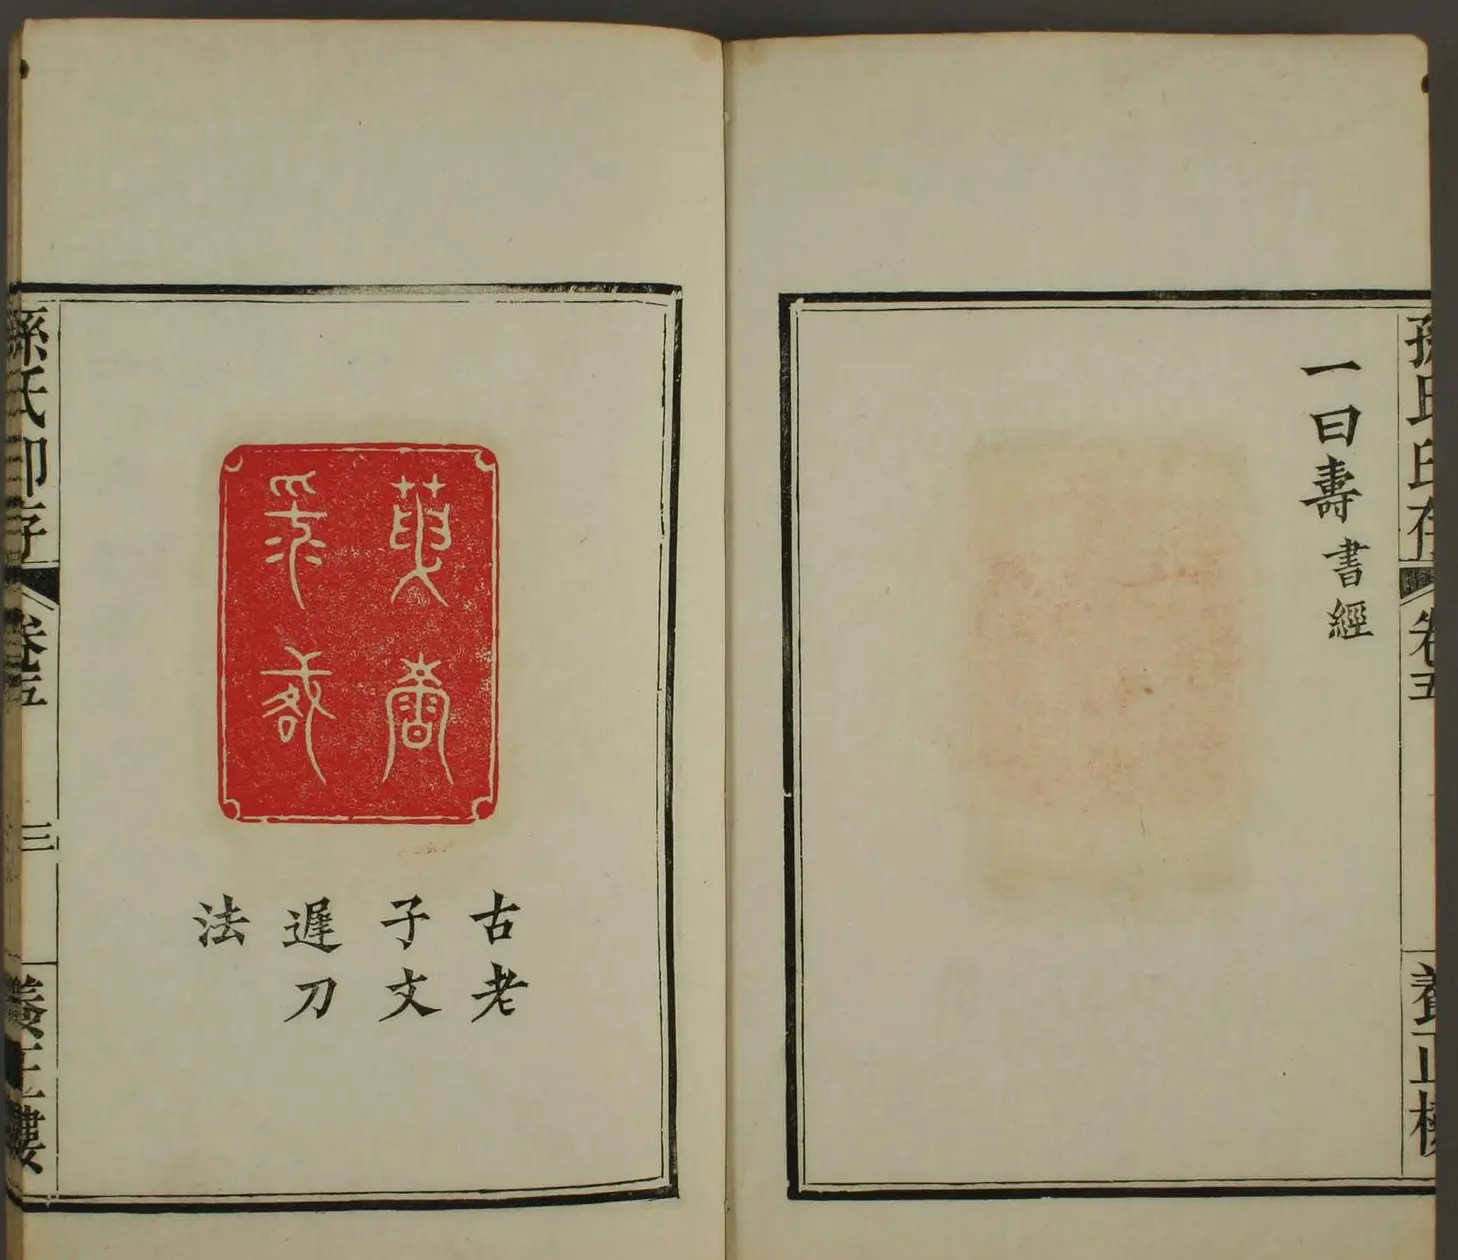 孫氏印存
卷五
養正樓
一曰壽書經
古老
子文
遲刀
法
孫氏印存
卷五
三
養正樓